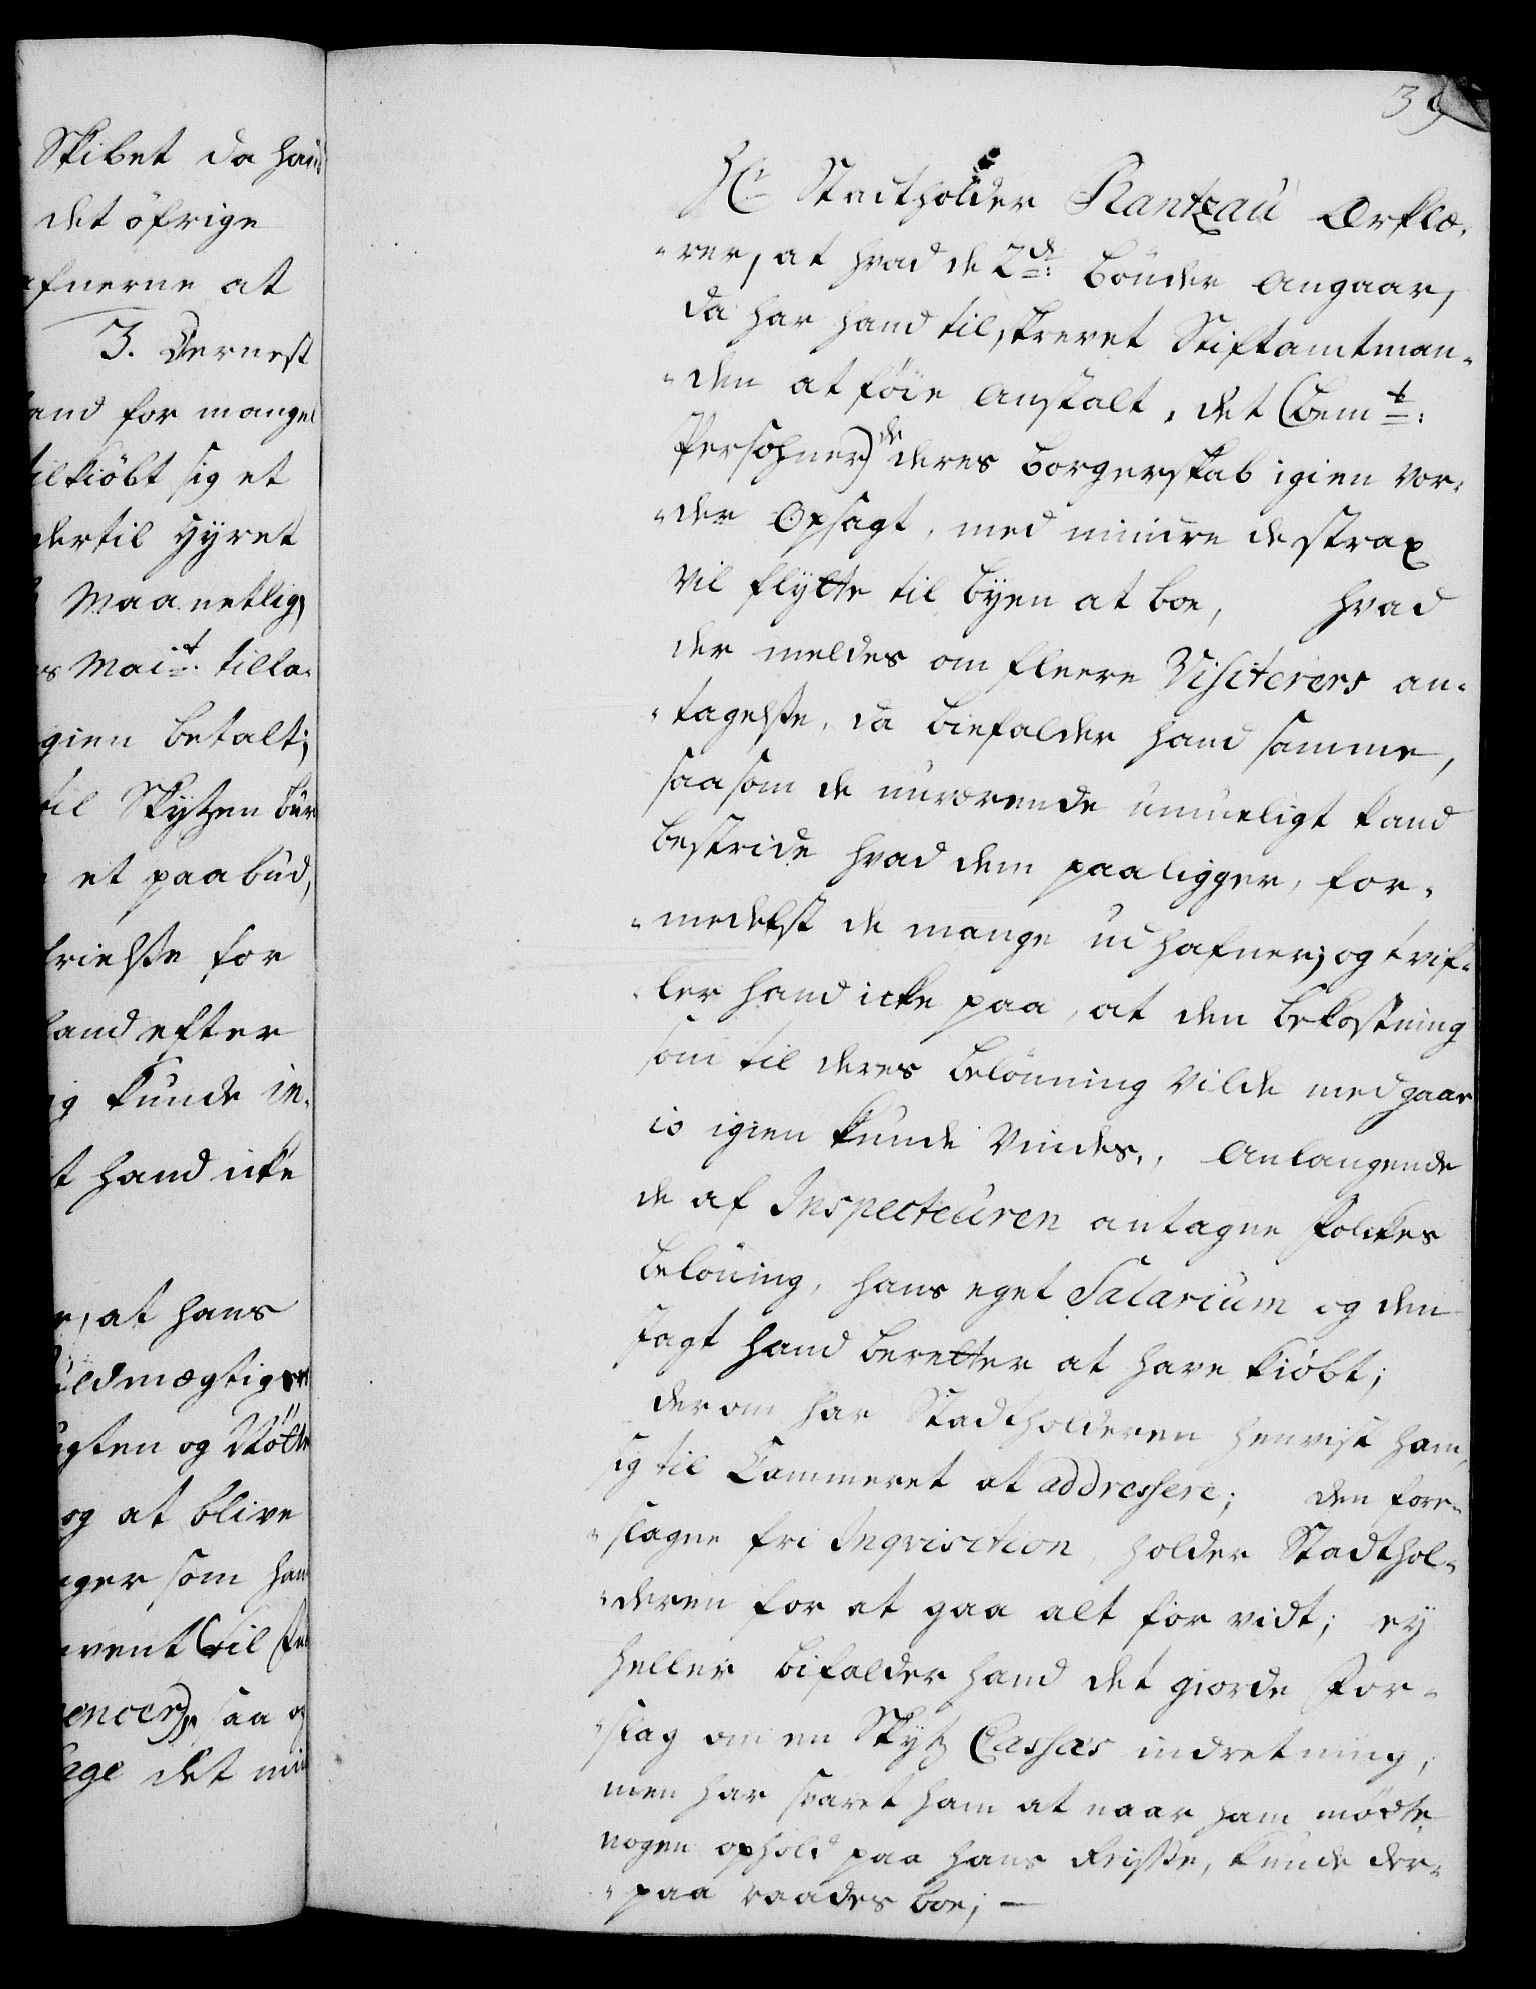 Skibet da hand
det öfrige
afnerne at
3. Dernest
and for mangel
tilkiöbt sig et
dertil hÿret
Maanetlig,
es Mai.t tilla-
gien betalt;
til Skytzen bür
et paabüd,
hrielse for
hand efter
ig kunde in-
t hand icke
r, at hans
uldmægtiger
ugsten og Nötte
og at blive
nger som han
uvent (til
encer), saa og
ege det min
39
Hr. Stadtholder Rantzaü Erklæ-
rer, at hvad de 2de. bönder Angaar,
da har hand tilskrevet Stiftamtman-
den at föie Anstalt, det (bemt.
Persohner) de deres borgerskab igien vor-
der Opsagt, med mindre de strax
Vil flÿtte til bÿen at boe, hvad
der meldes om fleere Visiterers an-
tagelse, da biefalder hand samme,
saasom de nuværende umueligt kand
bestride hvad dem paaligger, for-
medelst de mange udhafner; og tvif-
ler hand icke paa, at den bekostning
som til deres belönning Vilde medgaae
io igien kunde Vindes., Anlangende
de af Inspecteüren antagne folckes
belöning, hans eget Salarium og den
Jagt hand beretter at have kiöbt;
derom har Stadtholderen henvist ham,
sig til Cammeret at addressere; den fore-
slagne fri Inqvisition, holder Stadthol-
deren for at gaa alt for vidt; eÿ
heller bifalder hand det giorde For-
slag om en Skÿtz Cassæs indretning,
men har svaret ham at naar ham mödte
nogen ophold paa hans Reise, kunde der-
paa raades boe; —